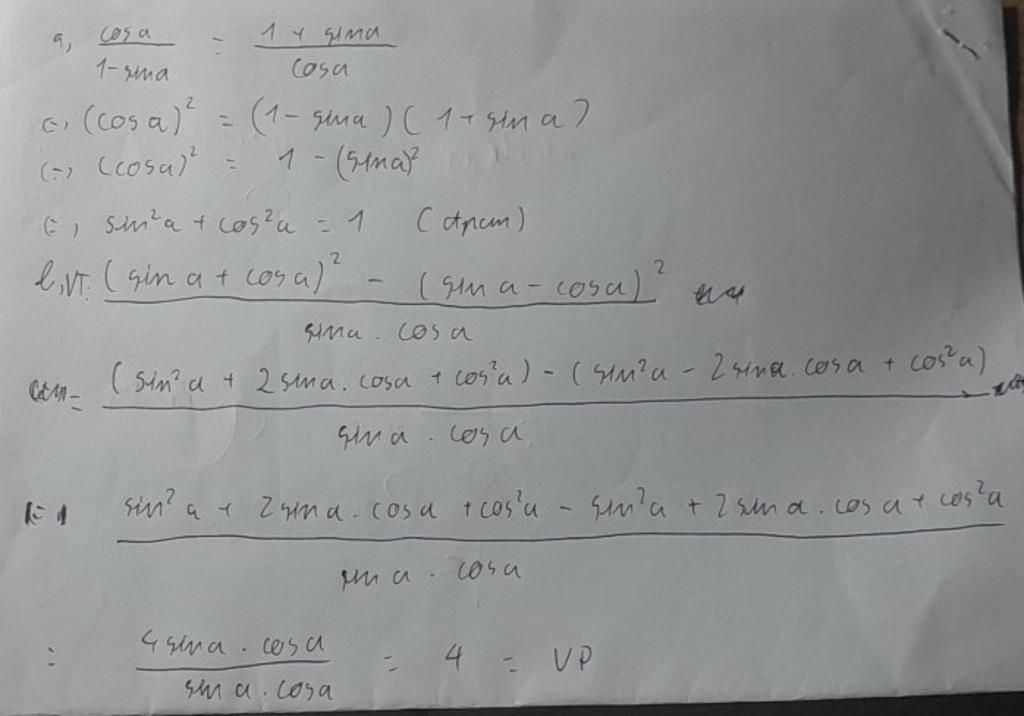 a, cosa / 1-sina = 1 + sina / cosa
(=) (cosa)² = (1 - sina)(1 + sin a)
(=) (cosa)² = 1 - (sina)²
(=) sin²a + cos²a = 1 (đpcm)
b, VT: (sin a + cosa)² - (sin a - cosa)² / sina . cosa
= (sin²a + 2sina. cosa + cos²a) - (sin²a - 2sina. cosa + cos²a) / sina . cosa
= sin²a + 2sina. cosa + cos²a - sin²a + 2sina. cosa + cos²a / sina . cosa
= 4sina . cosa / sina . cosa = 4 = VP